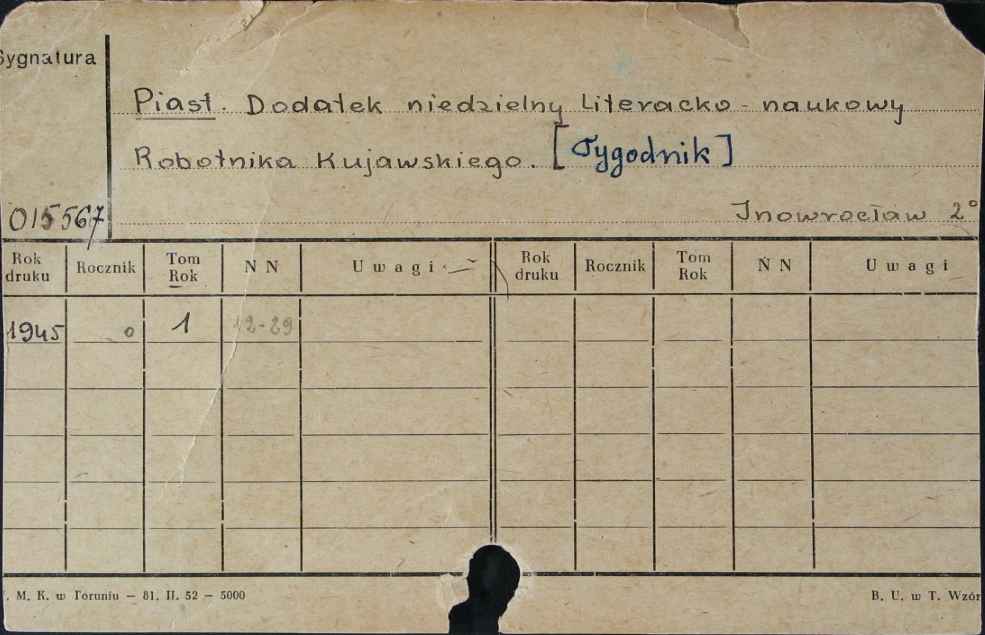 Sygnatura
Piast. Dodatek niedzielny Literacko-naukowy
Robotnika Kujawskiego. [Tygodnik]
015567
Inowrocław 2°
Rok druku Rocznik Tom Rok N N Uwagi Rok druku Rocznik Tom Rok N N Uwagi
1945 0 1 12-29
. M. K. w Toruniu — 81. II. 52 — 5000
B. U. w T. Wzór